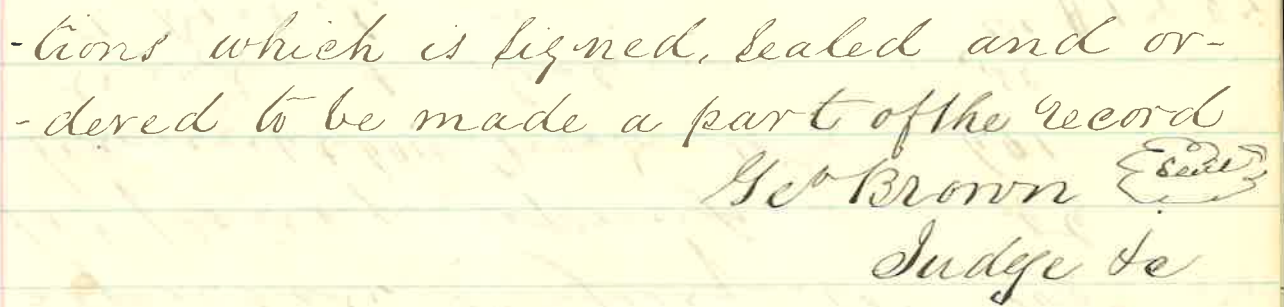 -tions which is signed, sealed and or-
-dered to be made a part of the record
Geo Brown Seal
Judge &c